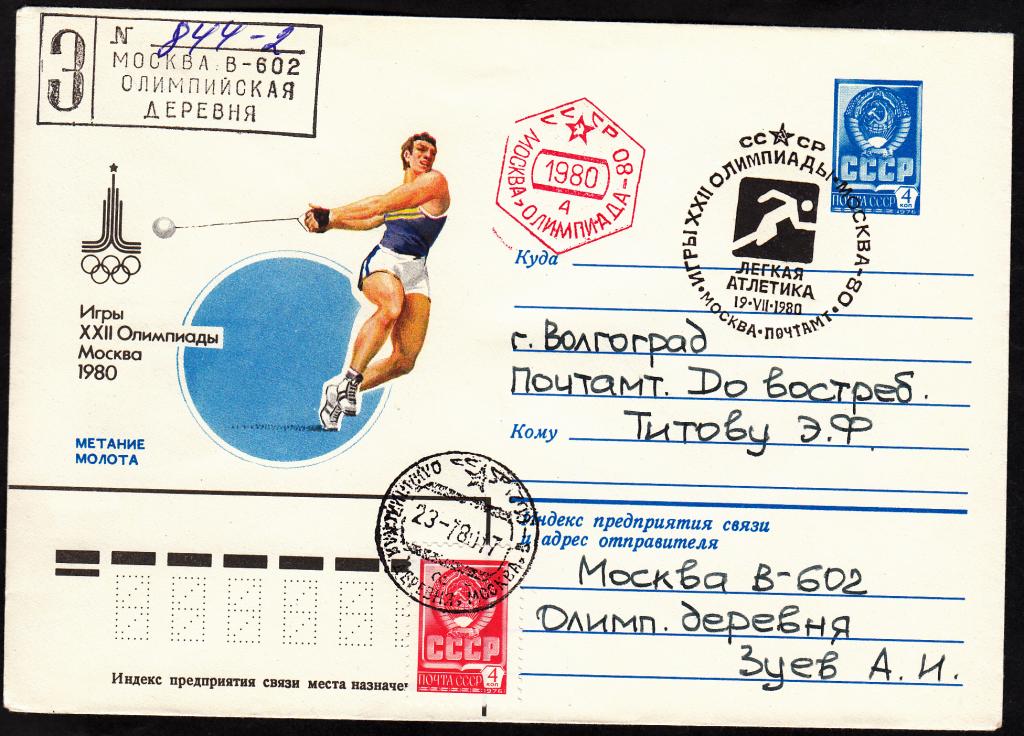 З
N 844-2
МОСКВА В-602
ОЛИМПИЙСКАЯ
ДЕРЕВНЯ
Игры
XXII Олимпиады
Москва
1980
МЕТАНИЕ
МОЛОТА
СССР
МОСКВА ОЛИМПИАДА-80
1980
4
СС СР
ИГРЫ XXII ОЛИМПИАДЫ • МОСКВА-80
ЛЕГКАЯ
АТЛЕТИКА
19•VII•1980
МОСКВА•ПОЧТАМТ
СССР
ПОЧТА СССР 4 КОП
1976
Куда
г. Волгоград
Почтамт. До востреб.
Кому Титову Э.Ф
Индекс предприятия связи
и адрес отправителя
Москва В-602
Олимп. деревня
Зуев А. И.
ДЕРЕВНЯ МОСКВА
СССР
ПОЧТА СССР 4 КОП
1976
Индекс предприятия связи места назначе